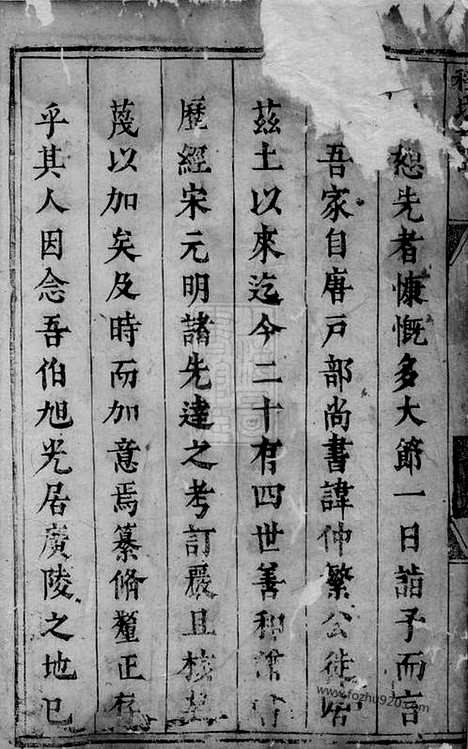 愆先者慷慨多大節一日詣予而言
吾家自唐戶部尚書諱仲繁公徙居
茲土以來迄今二十有四世善和
歷經宋元明諸先達之考訂嚴且核
蔑以加矣及時而加意焉纂脩釐正存
乎其人因念吾伯旭光居廣陵之地已
www.fozhu920.com